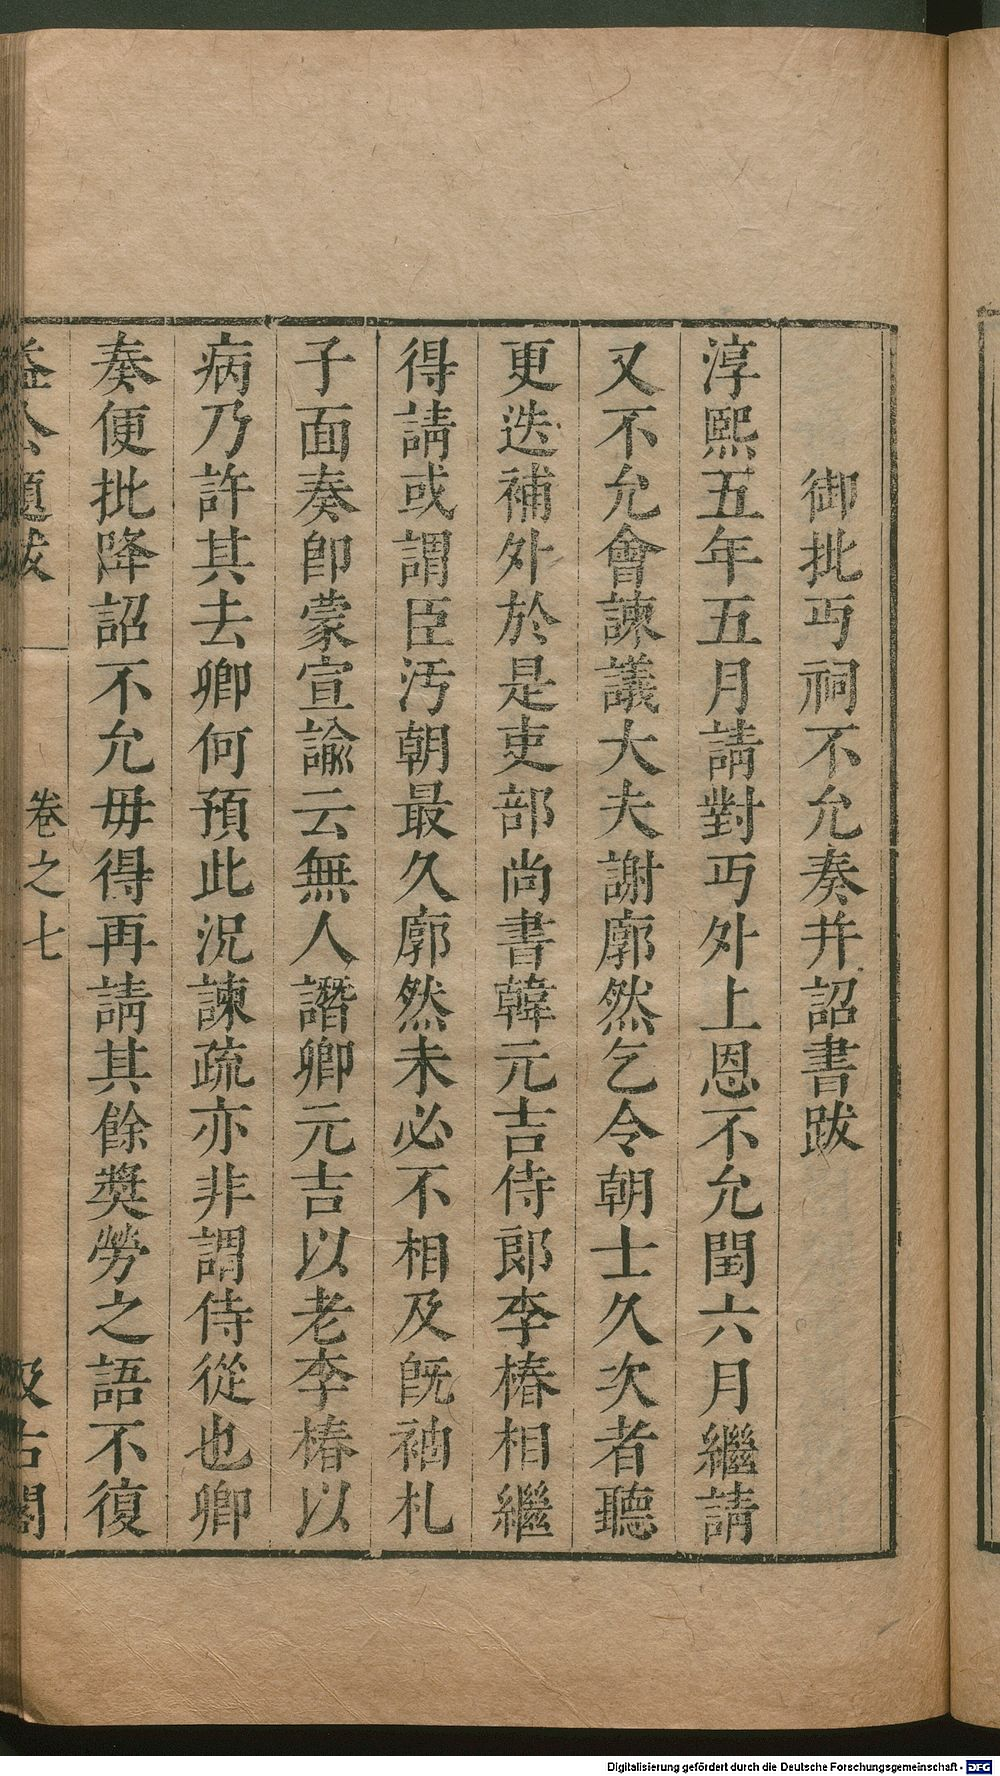 御批丐祠不允奏并詔書跋
淳熙五年五月請對丐外上恩不允閏六月繼請
又不允會諫議大夫謝廓然乞令朝士久次者聽
更迭補外於是吏部尚書韓元吉侍郎李椿相繼
得請或謂臣汚朝最久廓然未必不相及旣袖札
子面奏卽蒙宣諭云無人譖卿元吉以老李椿以
病乃許其去卿何預此況諫疏亦非謂侍從也卿
奏便批降詔不允毋得再請其餘獎勞之語不復
益公題跋 卷之七 汲古閣
Digitalisierung gefördert durch die Deutsche Forschungsgemeinschaft - DFG